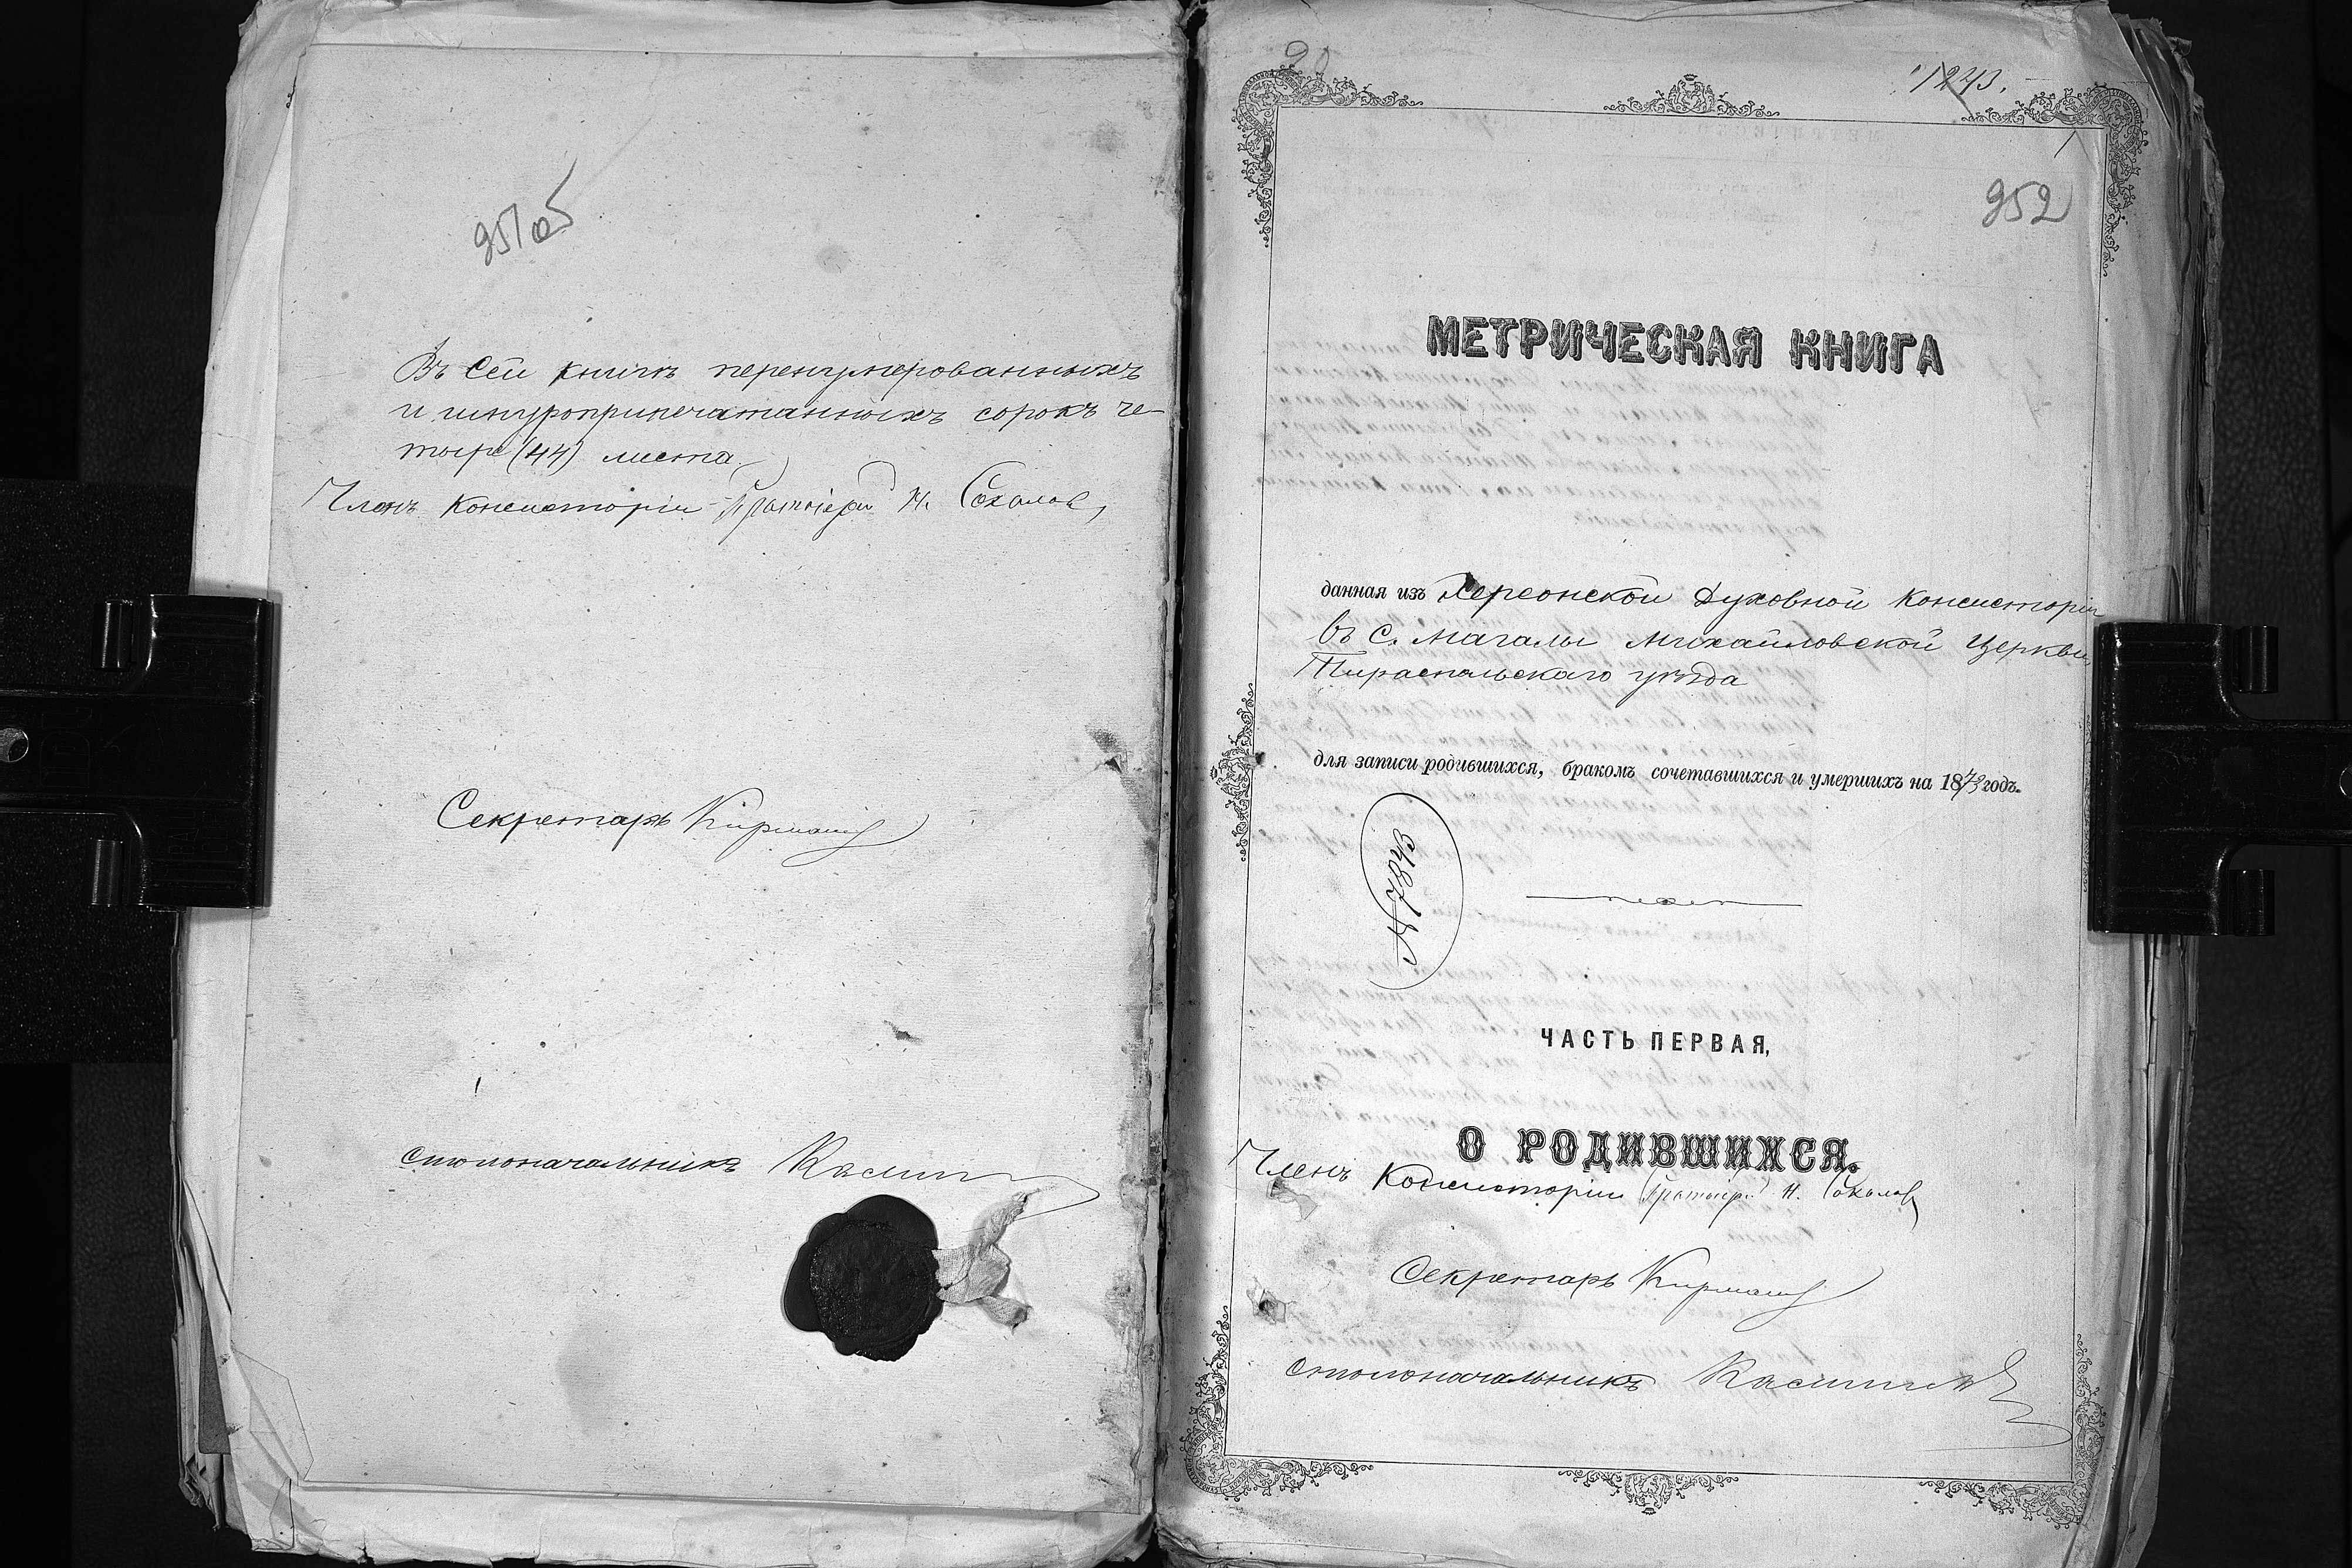 951об
Въ сей книгѣ перенумерованныхъ
и шнуроприпечатанныхъ сорокъ че-
тыре (44) листа.
Членъ Консисторіи Протоіерей Н. Соколов
Секретарь
столоначальникъ
20
1243.
1
952
МЕТРИЧЕСКАЯ КНИГА
данная изъ Херсонской Духовной Консисторіи
въ с. Магалы Михайловской Церкви
Тираспольскаго уѣзда
для записи родившихся, бракомъ сочетавшихся и умершихъ на 1873 годъ.
№ 7843
ЧАСТЬ ПЕРВАЯ,
О РОДИВШИХСЯ.
Членъ Консисторіи Протоіерей Н. Соколов
Секретарь
столоначальникъ